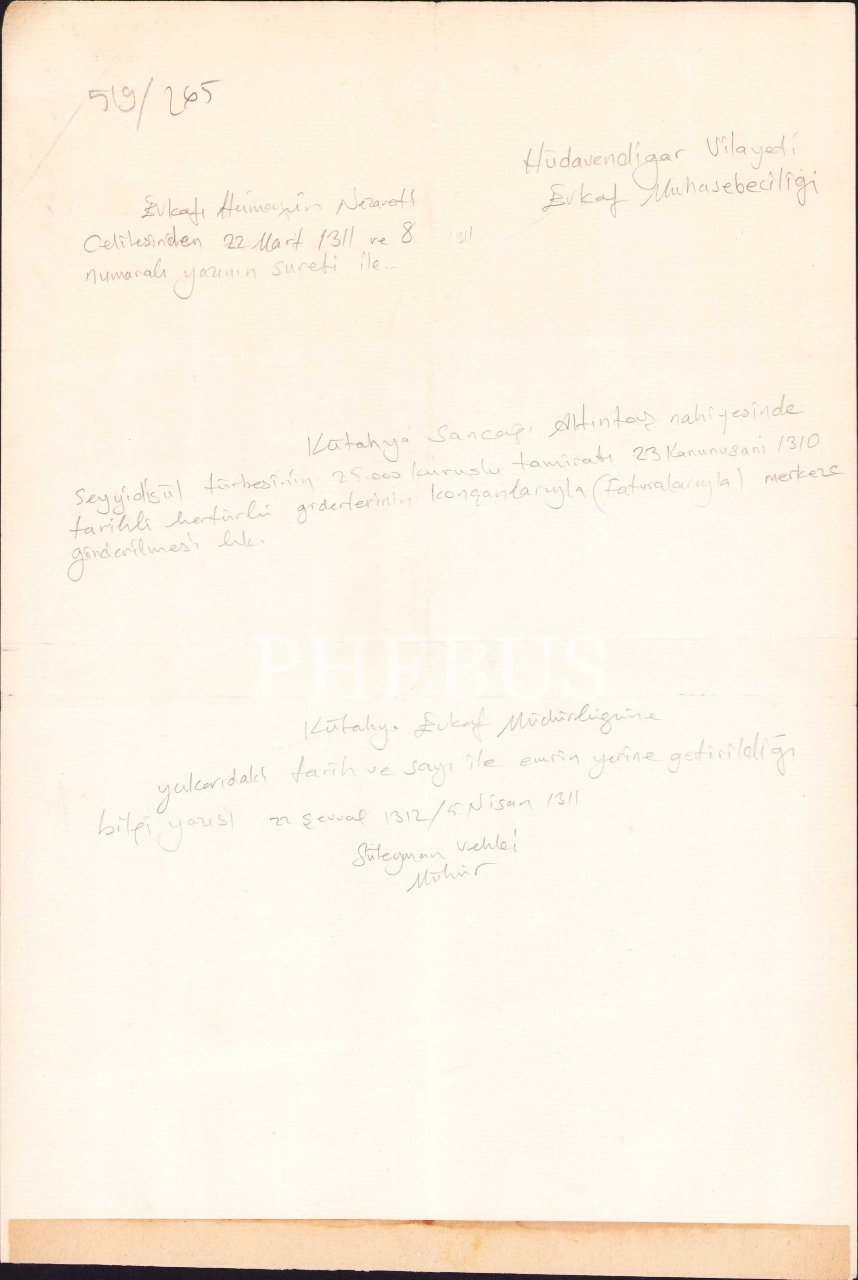 519/265
Hüdavendigar Vilayeti
Evkaf Muhasebeciliği
Evkafı Hümayün Nezareti
Celilesinden 22 Mart 1311 ve 8
1311
numaralı yazının sureti ile..
Kütahya Sancağı Altıntaş nahiyesinde
Seyyidisül türbesinin 25.000 kuruşluk tamiratı 23 Kanunusani 1310
tarihli hertürlü giderlerinin koçanlarıyla (faturalarıyla) merkeze
gönderilmesi hk.
PHEBUS
Kütahya Evkaf Müdürlüğüne
yukarıdaki tarih ve sayı ile emrin yerine getirildiği
bilgi yazısı 22 Şevval 1312/5 Nisan 1311
Süleyman Vehbi
Mühür